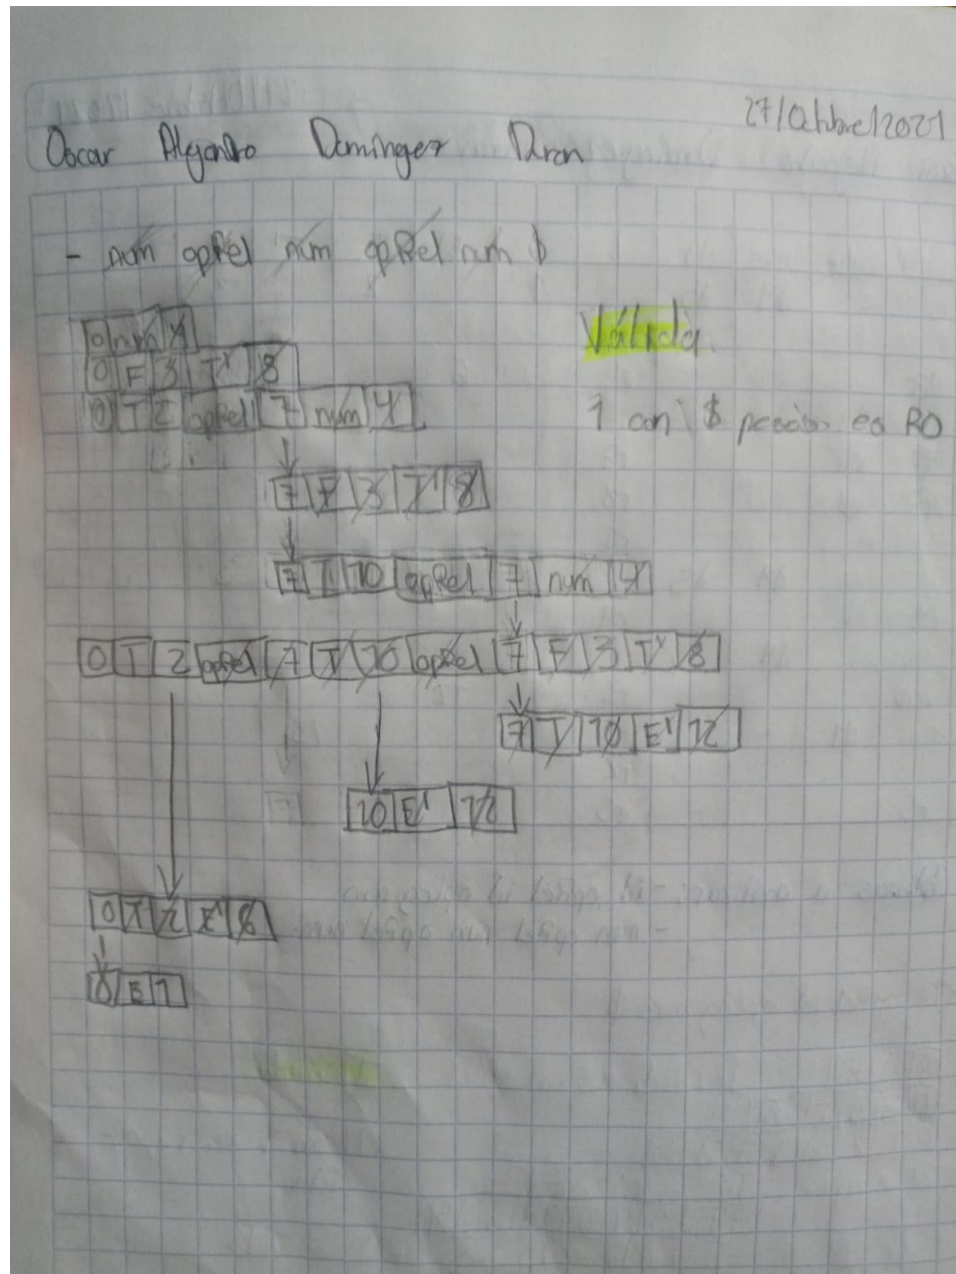 27/Octubre/2021
Oscar Alejandro Dominguez Duran
- num opRel num opRel num $
Válida.
0 num 4
0 F 3 T' 8
0 T 2 opRel 7 num 4
1 con $ es R0
7 F 3 T' 8
7 T 10 opRel 7 num 4
0 T 2 opRel 7 T 10 opRel 7 F 3 T' 8
7 T 10 E' 12
10 E' 12
0 T 2 E' 6
0 E 1